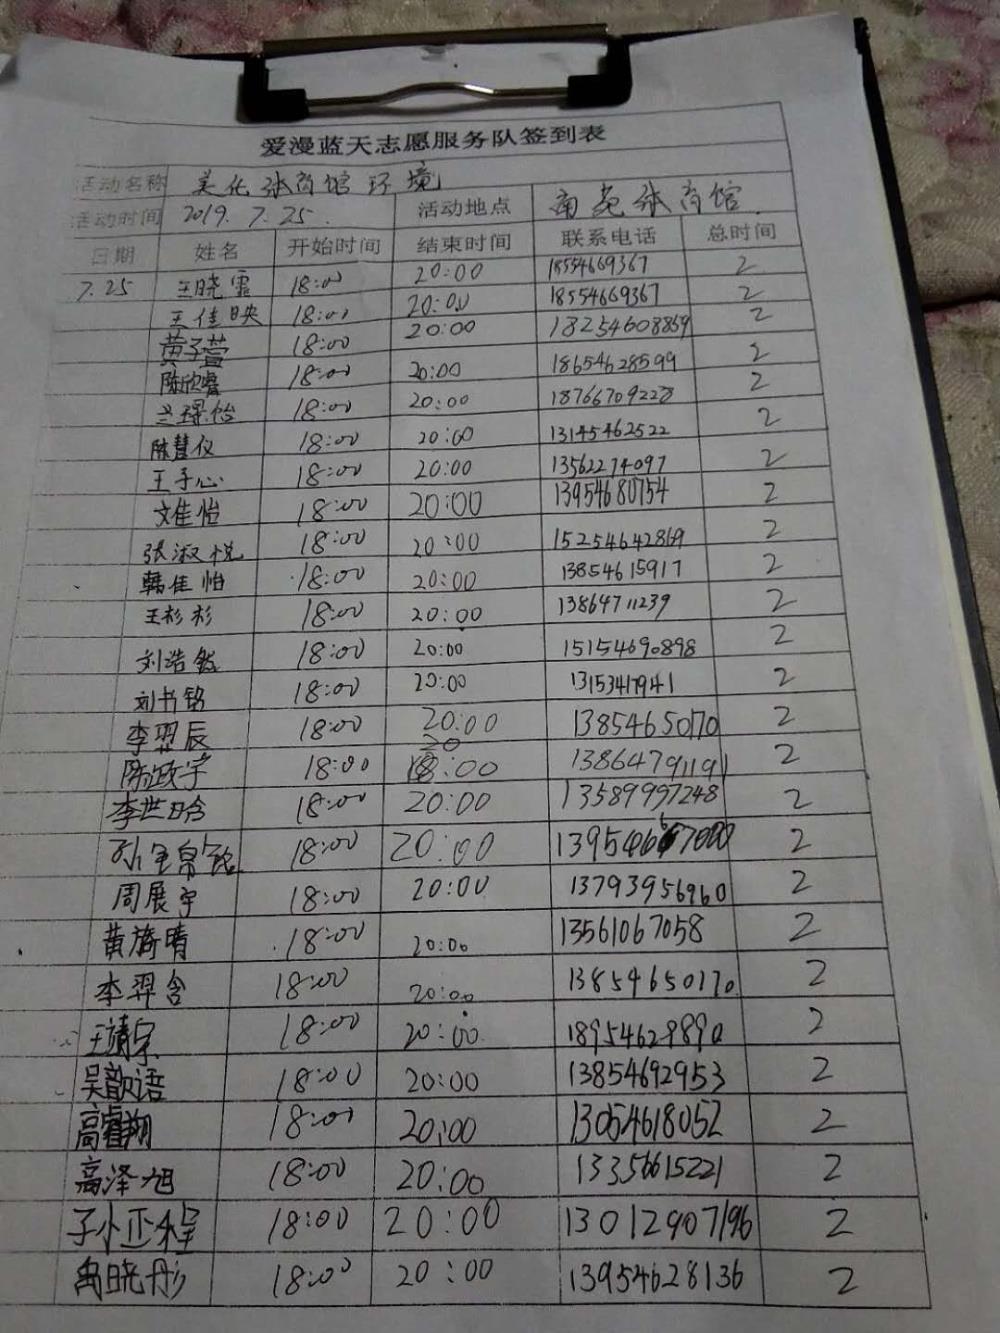 爱漫蓝天志愿服务队签到表
活动名称 美化张育馆环境
活动时间 2019.7.25. 活动地点 南苑张育馆
日期 姓名 开始时间 结束时间 联系电话 总时间
7.25 王晓霏 18:00 20:00 18554669367 2
王佳映 18:00 20:00 18554669367 2
黄子萱 18:00 20:00 18254608859 2
陈欣睿 18:00 20:00 18654628599 2
兰璟怡 18:00 20:00 18766709228 2
陈慧仪 18:00 20:00 13145462522 2
王子心 18:00 20:00 13562274097 2
文佳怡 18:00 20:00 13954680754 2
张淑悦 18:00 20:00 15254642869 2
韩佳怡 18:00 20:00 13854615917 2
王杉杉 18:00 20:00 13864711239 2
刘浩然 18:00 20:00 15154690898 2
刘书铭 18:00 20:00 13153417941 2
李羿辰 18:00 20:00 13854650170 2
陈政宇 18:00 20:00 13864791191 2
李世晗 18:00 20:00 13589997248 2
孙 18:00 20:00 2
周展宇 18:00 20:00 13793956960 2
黄旖晴 18:00 20:00 13561067058 2
李羿含 18:00 20:00 13854650170 2
王靖宗 18:00 20:00 18954629890 2
吴歆语 18:00 20:00 13854692953 2
高睿翔 18:00 20:00 13054618052 2
高泽旭 18:00 20:00 13356615221 2
孙正程 18:00 20:00 13012907196 2
禹晓彤 18:00 20:00 13954628136 2